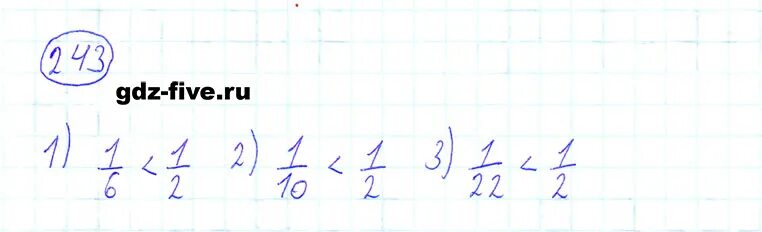 243
gdz-five.ru
1) 1/6 < 1/2 2) 1/10 < 1/2 3) 1/22 < 1/2